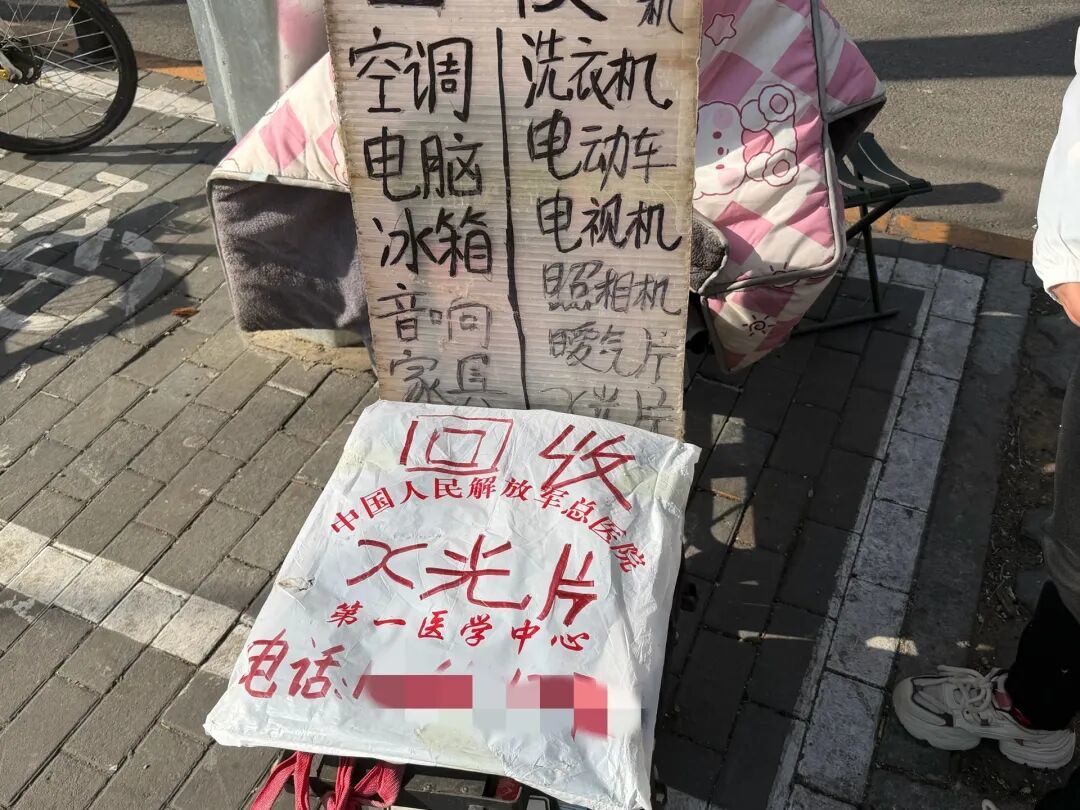 机
空调
电脑
冰箱
音响
家具
洗衣机
电动车
电视机
照相机
暖气片
X光片
回收
中国人民解放军总医院
X光片
第一医学中心
电话: